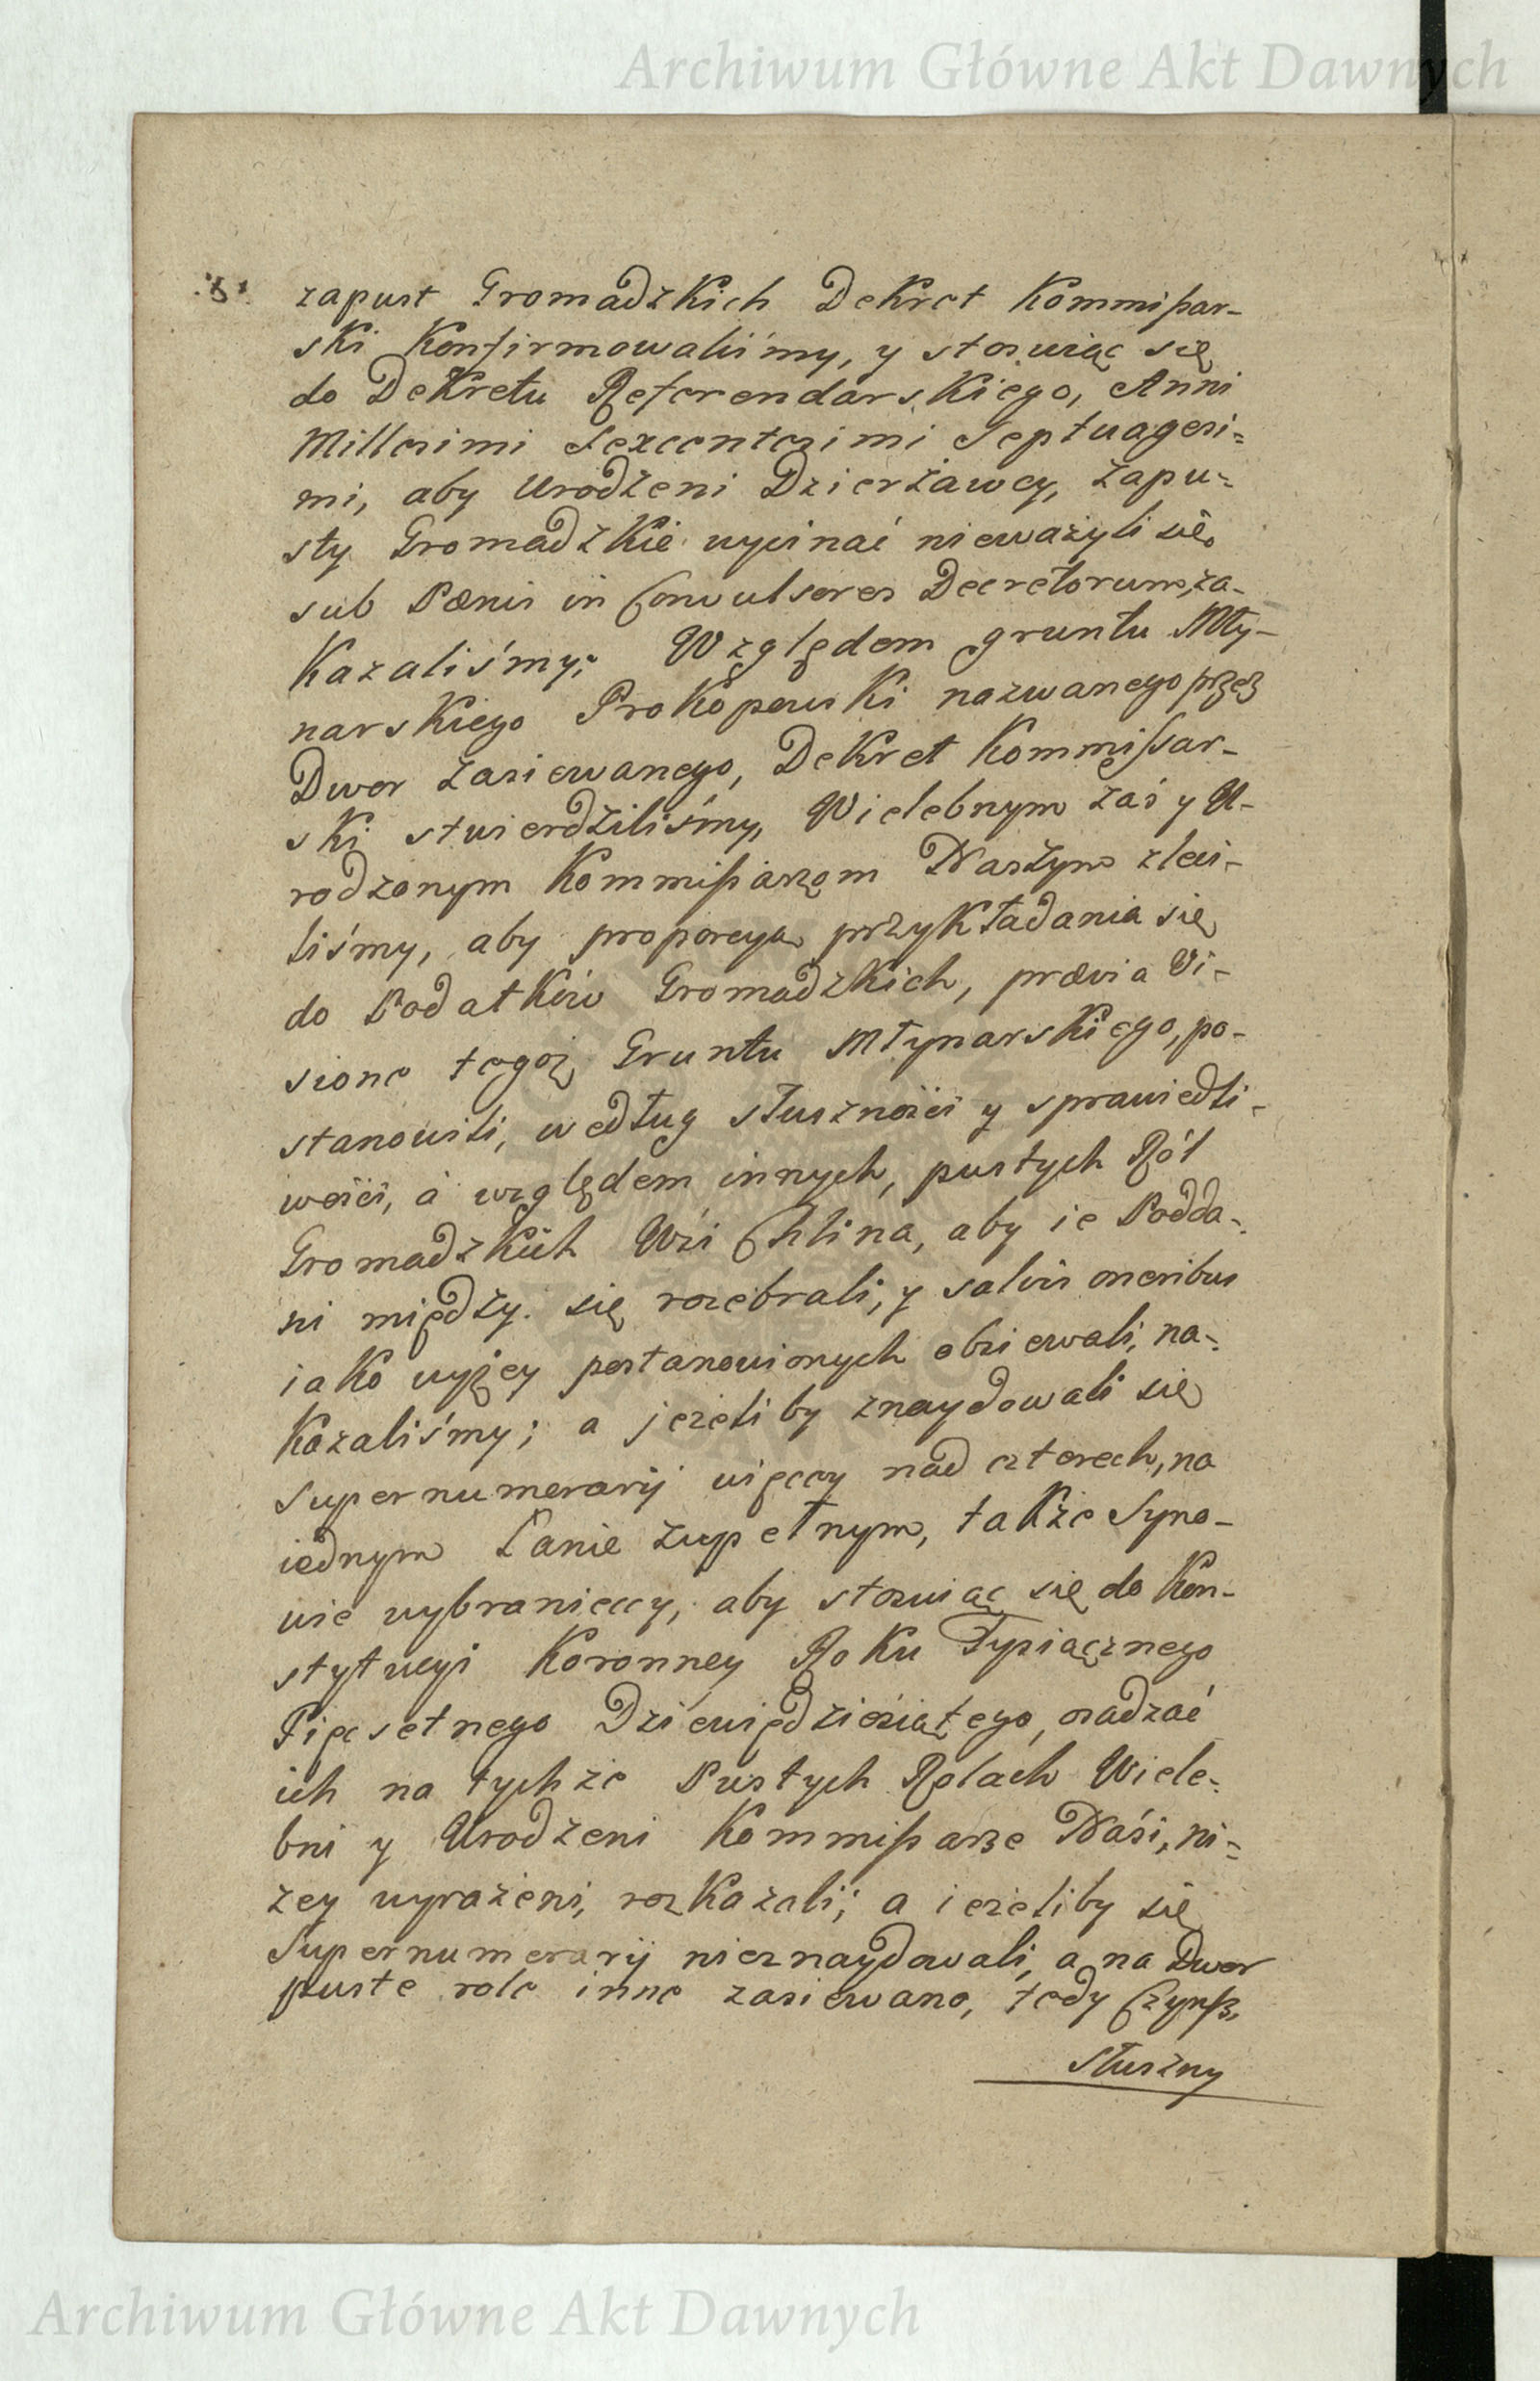 Archiwum Główne Akt Dawnych
zapust Gromadzkich Dekret Kommißar-
ski Konfirmowaliśmy, y stosuiąc się
do Dekretu Referendarskiego, Anni
Millesimi Sexcentesimi Septuagesi-
mi, aby Urodzeni Dzierżawcy, zapu-
sty Gromadzkie wycinać nieważyli się
sub Pœnis in Convulsores Decretorum, za-
kazaliśmy; Względem gruntu Mły-
narskiego Prokopowski nazwanego przez
Dwor zasiewanego, Dekret Kommißar-
ski stwierdziliśmy, Wielebnym zaś y U-
rodzonym Kommißarzom Naszym zleci-
liśmy, aby proporcyą przykładania się
do Podatków Gromadzkich, prævia Vi-
sione tegoż Gruntu Młynarskiego, po-
stanowili, według słuszności y sprawiedli-
wości, á względem innych, pustych Ról
Gromadzkich Wsi Chlina, aby ie Podda-
ni między się rozebrali, y salvis oneribus
iako wyżey postanowionych obsiewali, na-
kazaliśmy; a jeżeliby znaydowali się
Supernumerarij więccy nad czterech, na
iednym Łanie zupełnym, także Syno-
wie wybranieccy, aby stosuiąc się do Kon-
stytucyi Koronney Roku Tysiącznego
Pięćsetnego Dziewiędziesiątego, osadzać
ich na tychże Pustych Rolach Wiele-
bni y Urodzeni Kommißarze Naśi, ni-
żey wyrażeni, rozkazali; a ieżeliby się
Supernumerarij nieznaydowali, a na Dwor
puste role inne zasiewano, tedy Czynß,
słuszny
Archiwum Główne Akt Dawnych